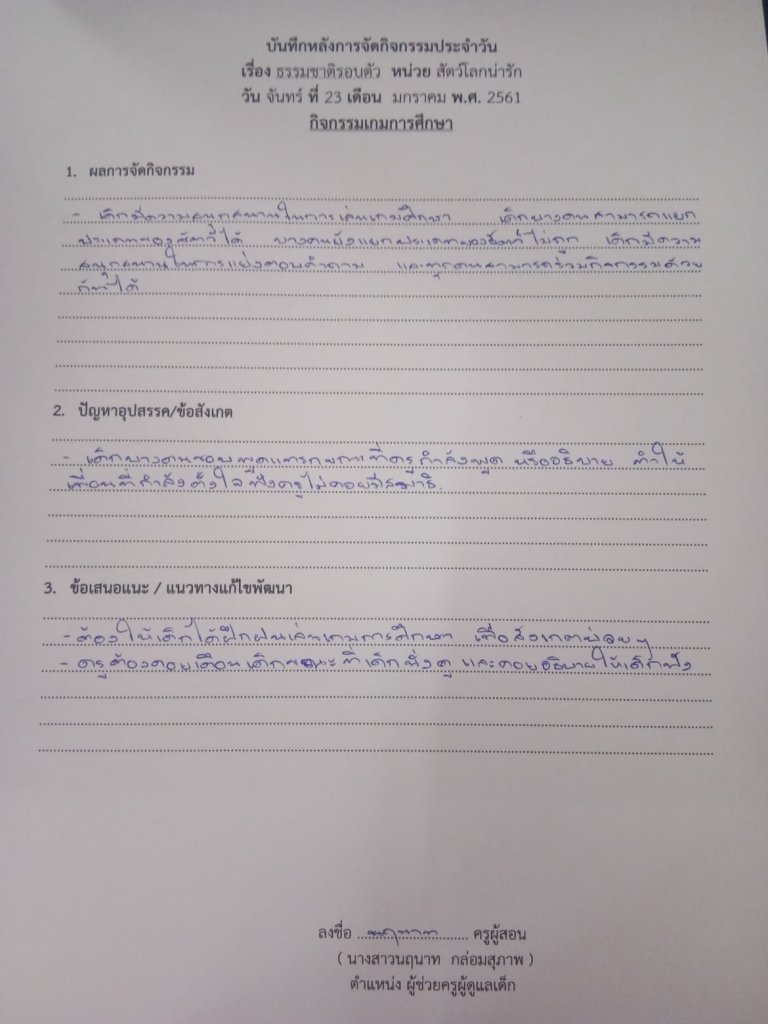 บันทึกหลังการจัดกิจกรรมประจำวัน
เรื่อง ธรรมชาติรอบตัว หน่วย สัตว์โลกน่ารัก
วัน จันทร์ ที่ 23 เดือน มกราคม พ.ศ. 2561
กิจกรรมเกมการศึกษา
1. ผลการจัดกิจกรรม
- เด็กมีความสนุกสนานในการเล่นเกมศึกษา เด็กบางคนสามารถแยก
ประเภทของสัตว์ได้ บางคนยังแยกประเภทของสัตว์ไม่ถูก เด็กมีความ
สนุกสนานในการแย่งตอบคำถาม และทุกคนสามารถร่วมกิจกรรมด้วย
กันได้
2. ปัญหาอุปสรรค/ข้อสังเกต
- เด็กบางคนชอบพูดแทรกขณะที่ครูกำลังพูด หรืออธิบาย ทำให้
เพื่อนที่กำลังตั้งใจฟังครูไม่ค่อยมีสมาธิ.
3. ข้อเสนอแนะ / แนวทางแก้ไขพัฒนา
- ต้องให้เด็กได้ฝึกฝนเล่นเกมการศึกษา เพื่อสังเกตบ่อยๆ
- ครูต้องคอยเตือนเด็กขณะที่เด็กนั่งดู และคอยอธิบายให้เด็กฟัง
ลงชื่อ ครูผู้สอน
( นางสาวนฤนาท กล่อมสุภาพ )
ตำแหน่ง ผู้ช่วยครูผู้ดูแลเด็ก